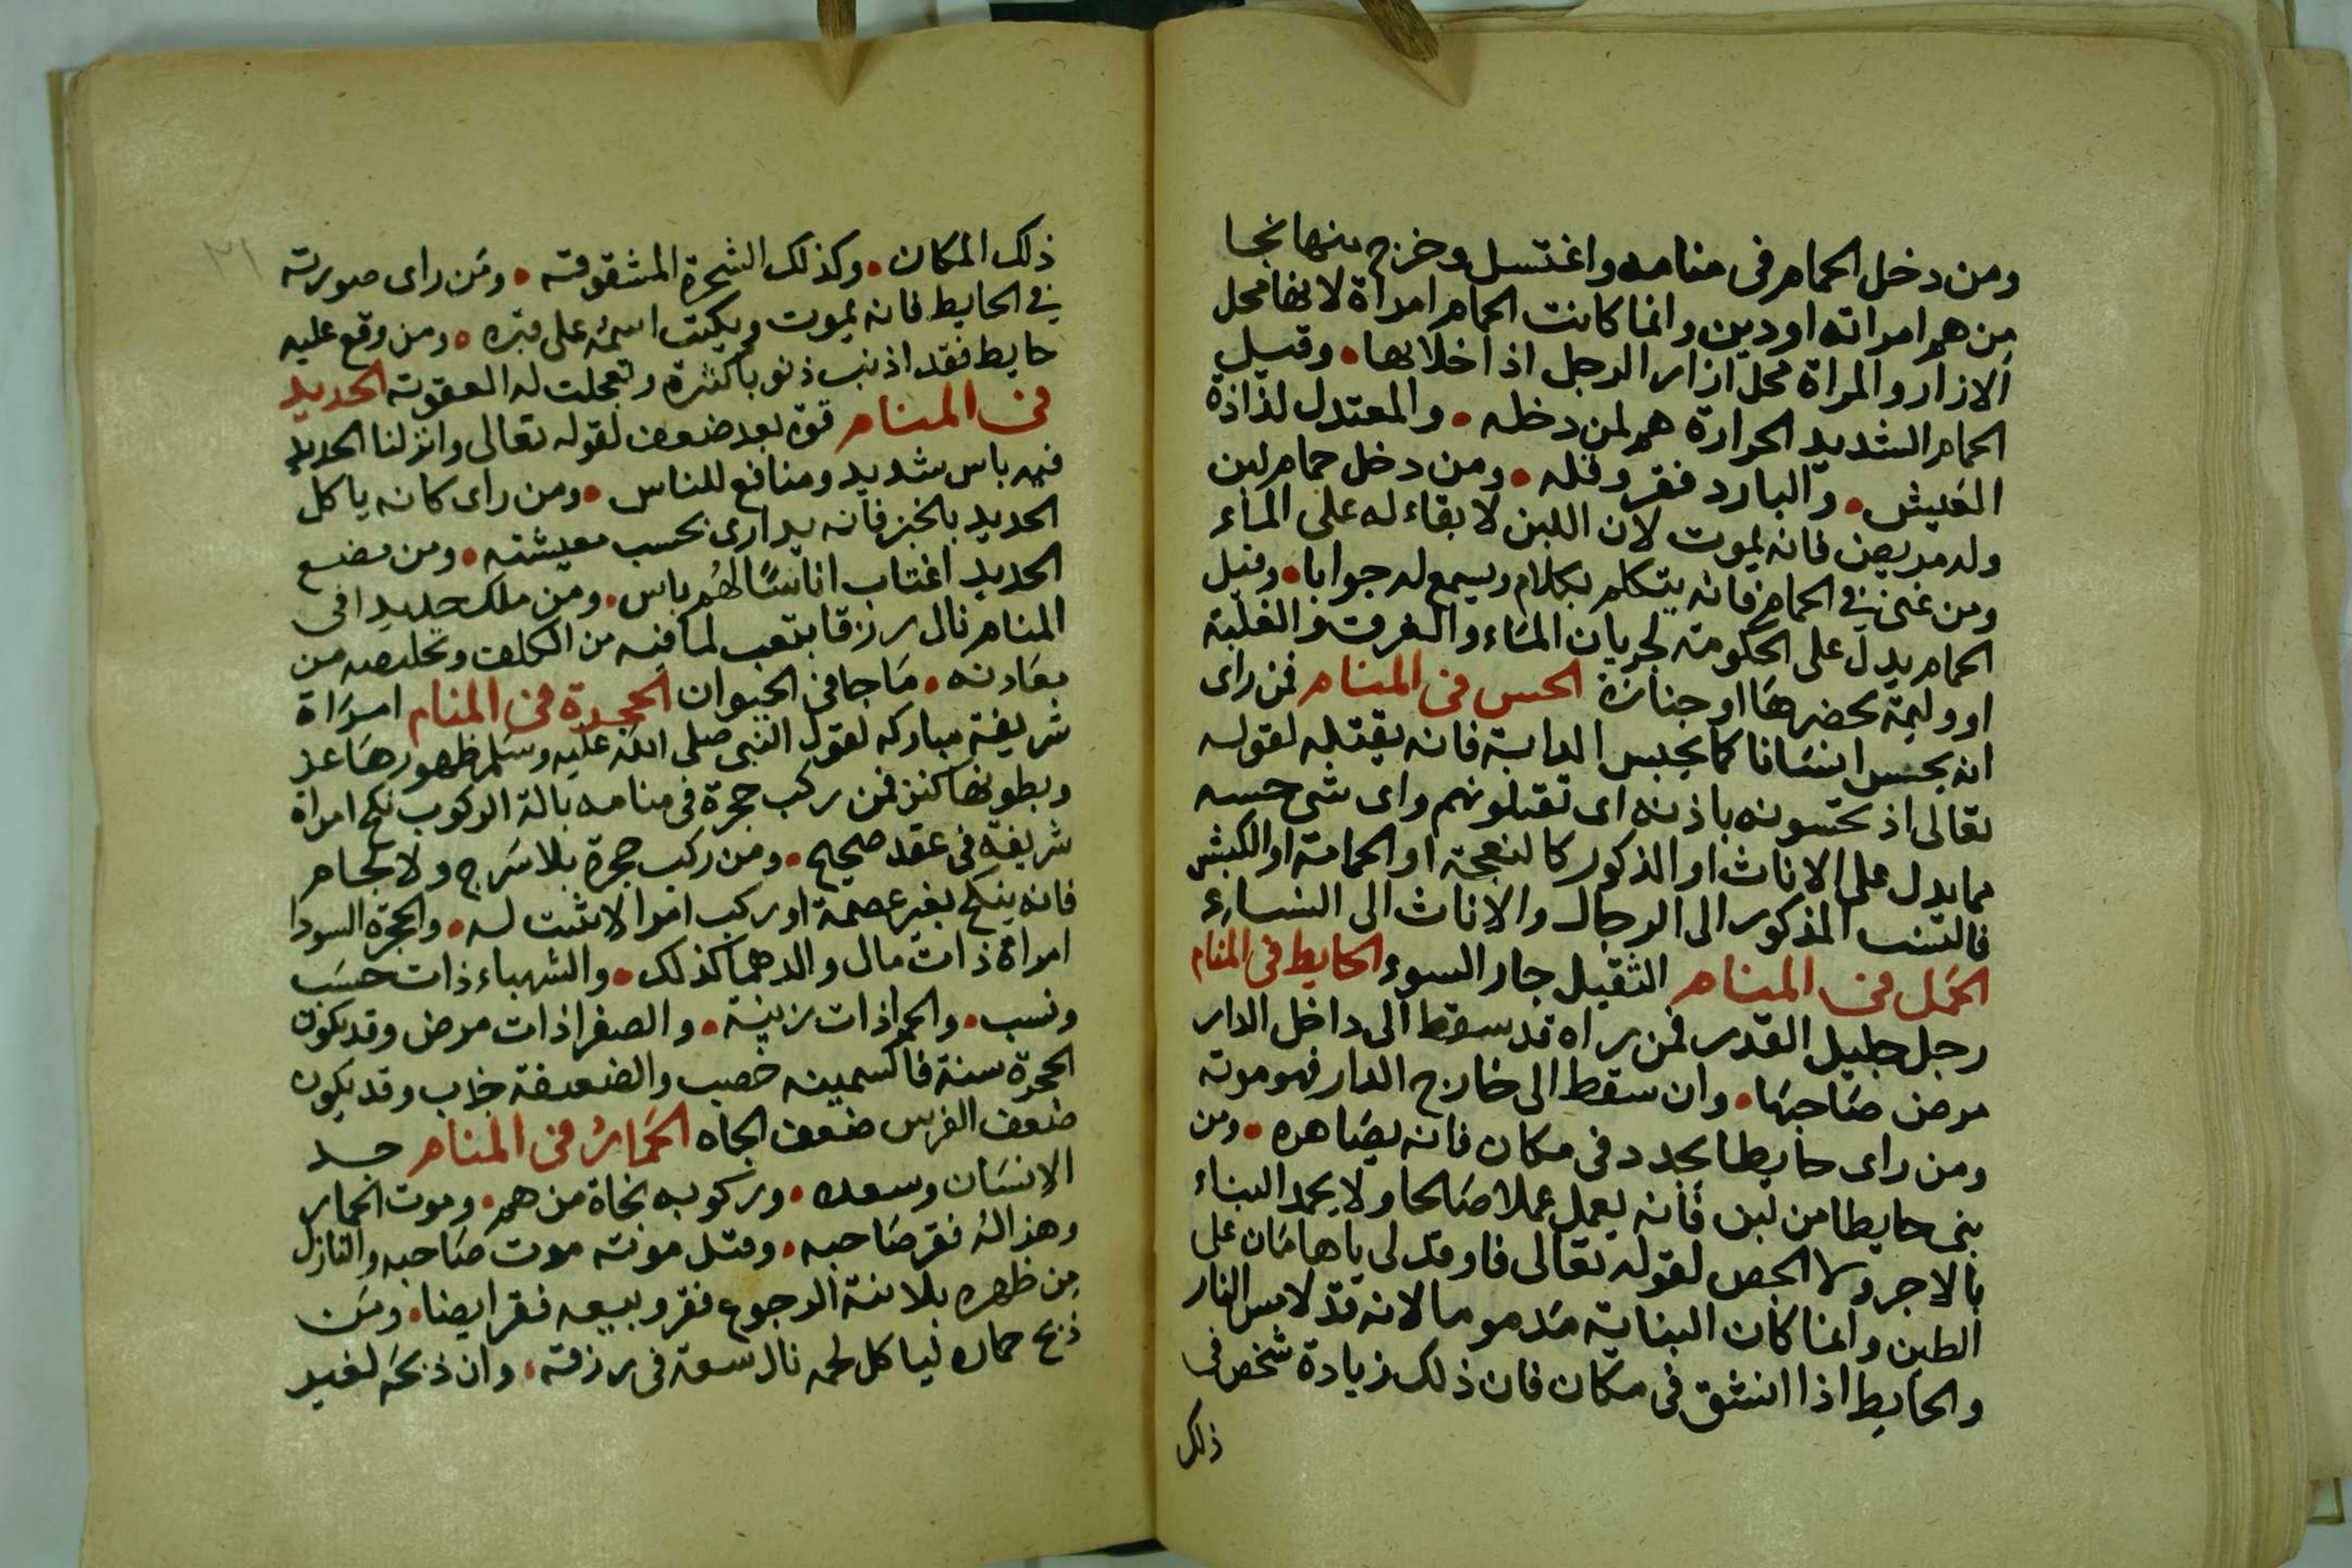 ومن دخل الحمام فى منامه واغتسل وخرج منها نجا
من هم امراته اودين وانما كانت الحمام امراة لانها محل
الازار والمراة محل ازار الرجل اذا خلا بها • وقيل
الحمام الشديد الحرارة هم لمن دخله • والمعتدل لذاذة
العيش • والبارد فقر وقله • ومن دخل حمام لبن
وله مريض فانه يموت لان اللبن لا بقاء له على الماء
ومن غنى فى الحمام فانه يتكلم بكلام ويسمع له جوابا • وقيل
الحمام يدل على الحكومة لجريان الماء والغرف والغلبة
او وليمة يحضرها او جنازة الحس فى المنام فمن راى
انه يحس انسانا كما يحبس الدابة فانه يقتله لقوله
تعالى اذ تحسونه باذنه اى تقتلونهم واى شى حسه
مما يدل على الاناث او الذكور كالنعجة او الحمامة او الكبش
فالتنسب المذكور الى الرجال والاناث الى النساء
الحمل فى المنام الثقيل جار السوء الحايط فى المنام
رجل جليل القدر فمن راه قد سقط الى داخل الدار
مرض صاحبها • وان سقط الى خارج الدار فهو موته
ومن راى حايطا يجدد فى مكان فانه يصاهره • ومن
بنى حايطا من لبن فانه يعمل عملا صالحا ولا يحمد البناء
بالاجر ولا الجص لقوله تعالى فاوقد لى ياهامان على
الطين وانما كان البناية مدموما لانه قد لامس النار
والحايط اذا انشق فى مكان فان ذلك زيادة شخص فى
ذلك
٣١
ذلك المكان • وكذلك الشجرة المشقوقة • ومن راى صورته
فى الحايط فانه يموت ويكتب اسمه على قبره • ومن وقع عليه
حايط فقد اذنب ذنوبا كثيرة وتعجلت له العقوبة الحديد
فى المنام قوة بعد ضعف لقوله تعالى وانزلنا الحديد
فيه باس شديد ومنافع للناس • ومن راى كانه ياكل
الحديد بالخبز فانه يدارى بحسب معيشته • ومن مضغ
الحديد اغتاب اناسا لهم باس • ومن ملك حديدا فى
المنام نال رزقا بتعب لما فيه من الكلف وتخليصه من
معادنه • ما جا فى الحيوان الحجرة فى المنام امراة
شريفة مباركه لقول النبى صلى الله عليه وسلم ظهورها عز
وبطونها كنز فمن ركب حجرة فى منامه بالة الركوب نكح امراة
شريفة فى عقد صحيح • ومن ركب حجرة بلا سرج ولا لجام
فانه ينكح بغير عصمة او ركب امرا لا يثبت له • والحجرة السودا
امراة ذات مال والدهما كذلك • والشهباء ذات حسب
ونسب • والحمرا ذات زينة • والصفرا ذات مرض وقد يكون
الحجرة سنة فالسمينه خصب والضعيفة جذاب وقد يكون
ضعف الفرس ضعف الجاه الحمار فى المنام جد
الانسان وسعده • وركوبه نجاة من هم • وموت الحمار
وهزاله فقر صاحبه • وقتل موته موت صاحبه والنازل
من ظهره بلا نية الرجوع فقر وبيعه فقر ايضا • ومن
ذبح حماره لياكل لحمه نال سعة فى رزقه • وان ذبحه لغير